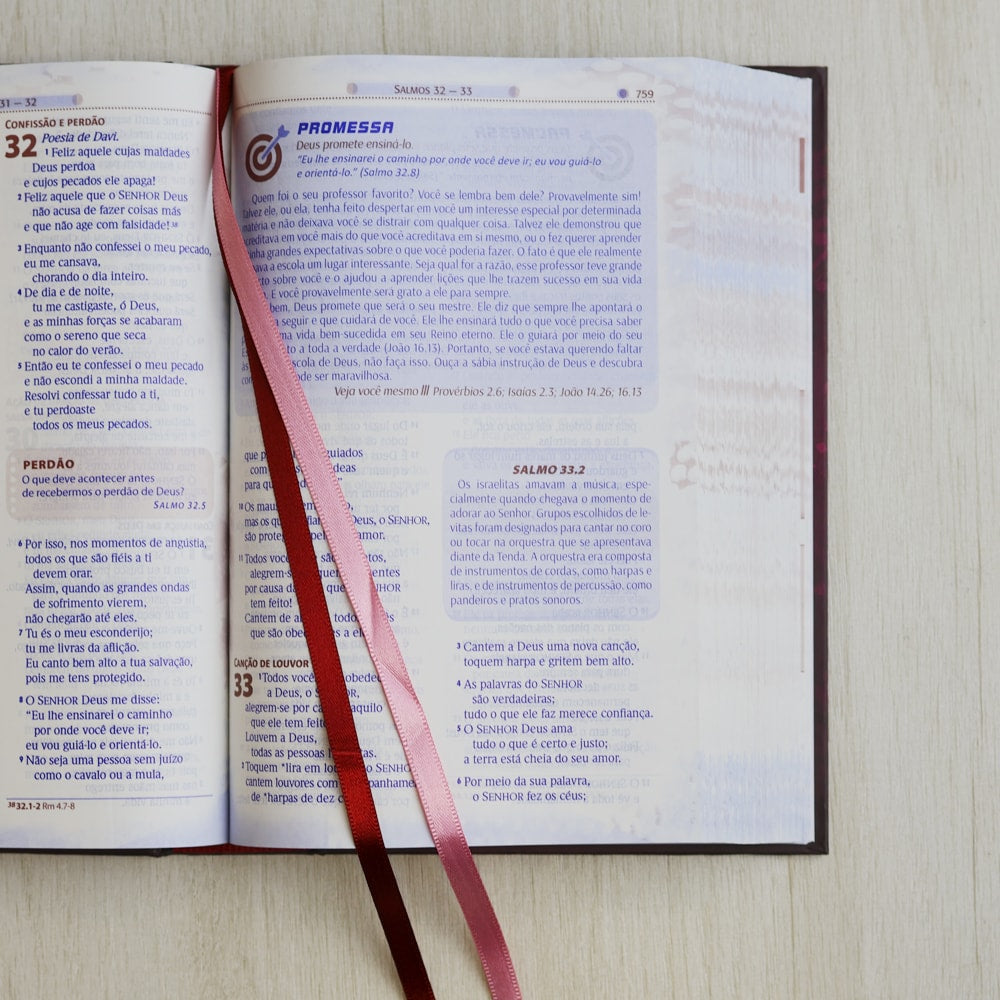 31 — 32
CONFISSÃO E PERDÃO
32 Poesia de Davi.
1 Feliz aquele cujas maldades
Deus perdoa
e cujos pecados ele apaga!
2 Feliz aquele que o SENHOR Deus
não acusa de fazer coisas más
e que não age com falsidade! 38
3 Enquanto não confessei o meu pecado,
eu me cansava,
chorando o dia inteiro.
4 De dia e de noite,
tu me castigaste, ó Deus,
e as minhas forças se acabaram
como o sereno que seca
no calor do verão.
5 Então eu te confessei o meu pecado
e não escondi a minha maldade.
Resolvi confessar tudo a ti,
e tu perdoaste
todos os meus pecados.
PERDÃO
O que deve acontecer antes
de recebermos o perdão de Deus?
SALMO 32.5
6 Por isso, nos momentos de angústia,
todos os que são fiéis a ti
devem orar.
Assim, quando as grandes ondas
de sofrimento vierem,
não chegarão até eles.
7 Tu és o meu esconderijo;
tu me livras da aflição.
Eu canto bem alto a tua salvação,
pois me tens protegido.
8 O SENHOR Deus me disse:
"Eu lhe ensinarei o caminho
por onde você deve ir;
eu vou guiá-lo e orientá-lo.
9 Não seja uma pessoa sem juízo
como o cavalo ou a mula,
38 32.1-2 Rm 4.7-8
SALMOS 32 — 33
759
PROMESSA
Deus promete ensiná-lo.
"Eu lhe ensinarei o caminho por onde você deve ir; eu vou guiá-lo
e orientá-lo." (Salmo 32.8)
Quem foi o seu professor favorito? Você se lembra bem dele? Provavelmente sim!
Talvez ele, ou ela, tenha feito despertar em você um interesse especial por determinada
matéria e não deixava você se distrair com qualquer coisa. Talvez ele demonstrou que
acreditava em você mais do que você acreditava em si mesmo, ou o fez querer aprender
tinha grandes expectativas sobre o que você poderia fazer. O fato é que ele realmente
a escola um lugar interessante. Seja qual for a razão, esse professor teve grande
sobre você e o ajudou a aprender lições que lhe trazem sucesso em sua vida
E você provavelmente será grato a ele para sempre.
bem, Deus promete que será o seu mestre. Ele diz que sempre lhe apontará o
a seguir e que cuidará de você. Ele lhe ensinará tudo o que você precisa saber
vida bem-sucedida em seu Reino eterno. Ele o guiará por meio do seu
a toda a verdade (João 16.13). Portanto, se você estava querendo faltar
de Deus, não faça isso. Ouça a sábia instrução de Deus e descubra
ser maravilhosa.
Veja você mesmo Provérbios 2.6; Isaías 2.3; João 14.26; 16.13
que guiados
com
para
10 Os maus
mas os que Deus, o SENHOR,
são amor.
11 Todos você são
alegrem-se
por causa
tem feito!
Cantem de todo
que são
CANÇÃO DE LOUVOR
33 1 Todos
a Deus, o
alegrem-se por aquilo
que ele tem
Louvem a Deus,
todas as pessoas
2 Toquem *lira em
cantem louvores com
de *harpas de dez
SALMO 33.2
Os israelitas amavam a música, espe-
cialmente quando chegava o momento de
adorar ao Senhor. Grupos escolhidos de le-
vitas foram designados para cantar no coro
ou tocar na orquestra que se apresentava
diante da Tenda. A orquestra era composta
de instrumentos de cordas, como harpas e
liras, e de instrumentos de percussão, como
pandeiros e pratos sonoros.
3 Cantem a Deus uma nova canção,
toquem harpa e gritem bem alto.
4 As palavras do SENHOR
são verdadeiras;
tudo o que ele faz merece confiança.
5 O SENHOR Deus ama
tudo o que é certo e justo;
a terra está cheia do seu amor.
6 Por meio da sua palavra,
o SENHOR fez os céus;